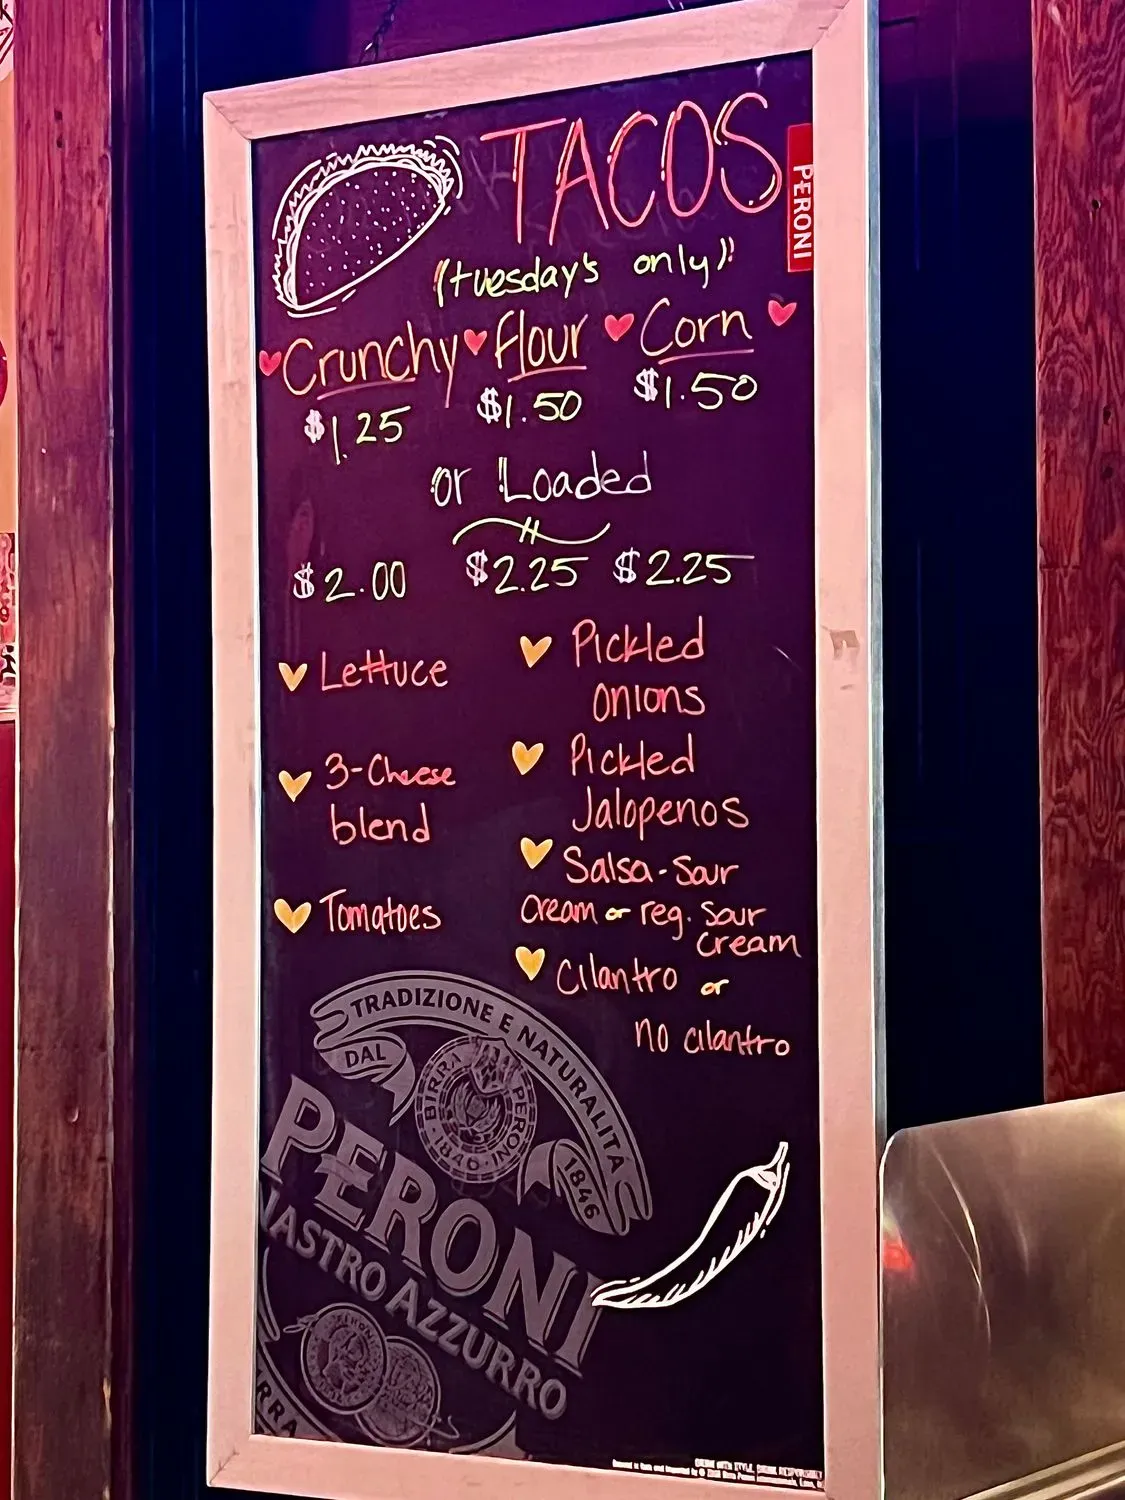 TACOS
PERONI
(tuesday's only)!
Crunchy Flour Corn
$1.25 $1.50 $1.50
or Loaded
$2.00 $2.25 $2.25
Lettuce
3-Cheese
blend
Tomatoes
Pickled
onions
Pickled
Jalopenos
Salsa-Sour
Cream or reg. Sour
cream
Cilantro or
no cilantro
TRADIZIONE E NATURALITA
DAL 1846
BIRRA PERONI
PERONI
NASTRO AZZURRO